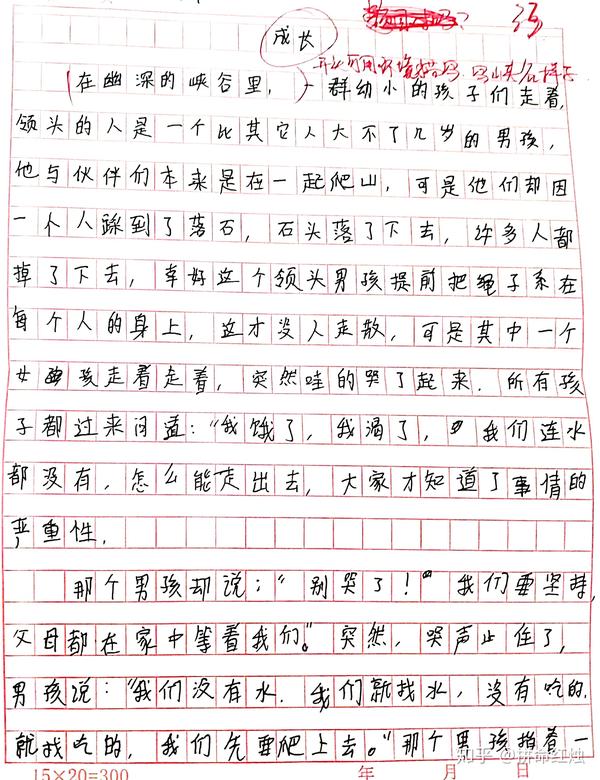 成长
开头可用环境描写，写山峡的样子
(在幽深的峡谷里，)一群幼小的孩子们走着，
领头的人是一个比其它人大不了几岁的男孩，
他与伙伴们本来是在一起爬山，可是他们却因
一个人踩到了落石，石头落了下去，许多人都
掉了下去，幸好这个领头男孩提前把绳子系在
每个人的身上，这才没人走散，可是其中一个
女孩走着走着，突然哇的哭了起来．所有孩
子都过来问道："我饿了，我渴了，我们连水
都没有，怎么能走出去，大家才知道了事情的
严重性．
那个男孩却说："别哭了！"我们要坚持，
父母都在家中等着我们。"突然，哭声止住了，
男孩说："我们没有水．我们就找水，没有吃的．
就找吃的，我们先要爬上去。"那个男孩拍着一
15×20=300 年 月 日
知乎 @拼命红烛